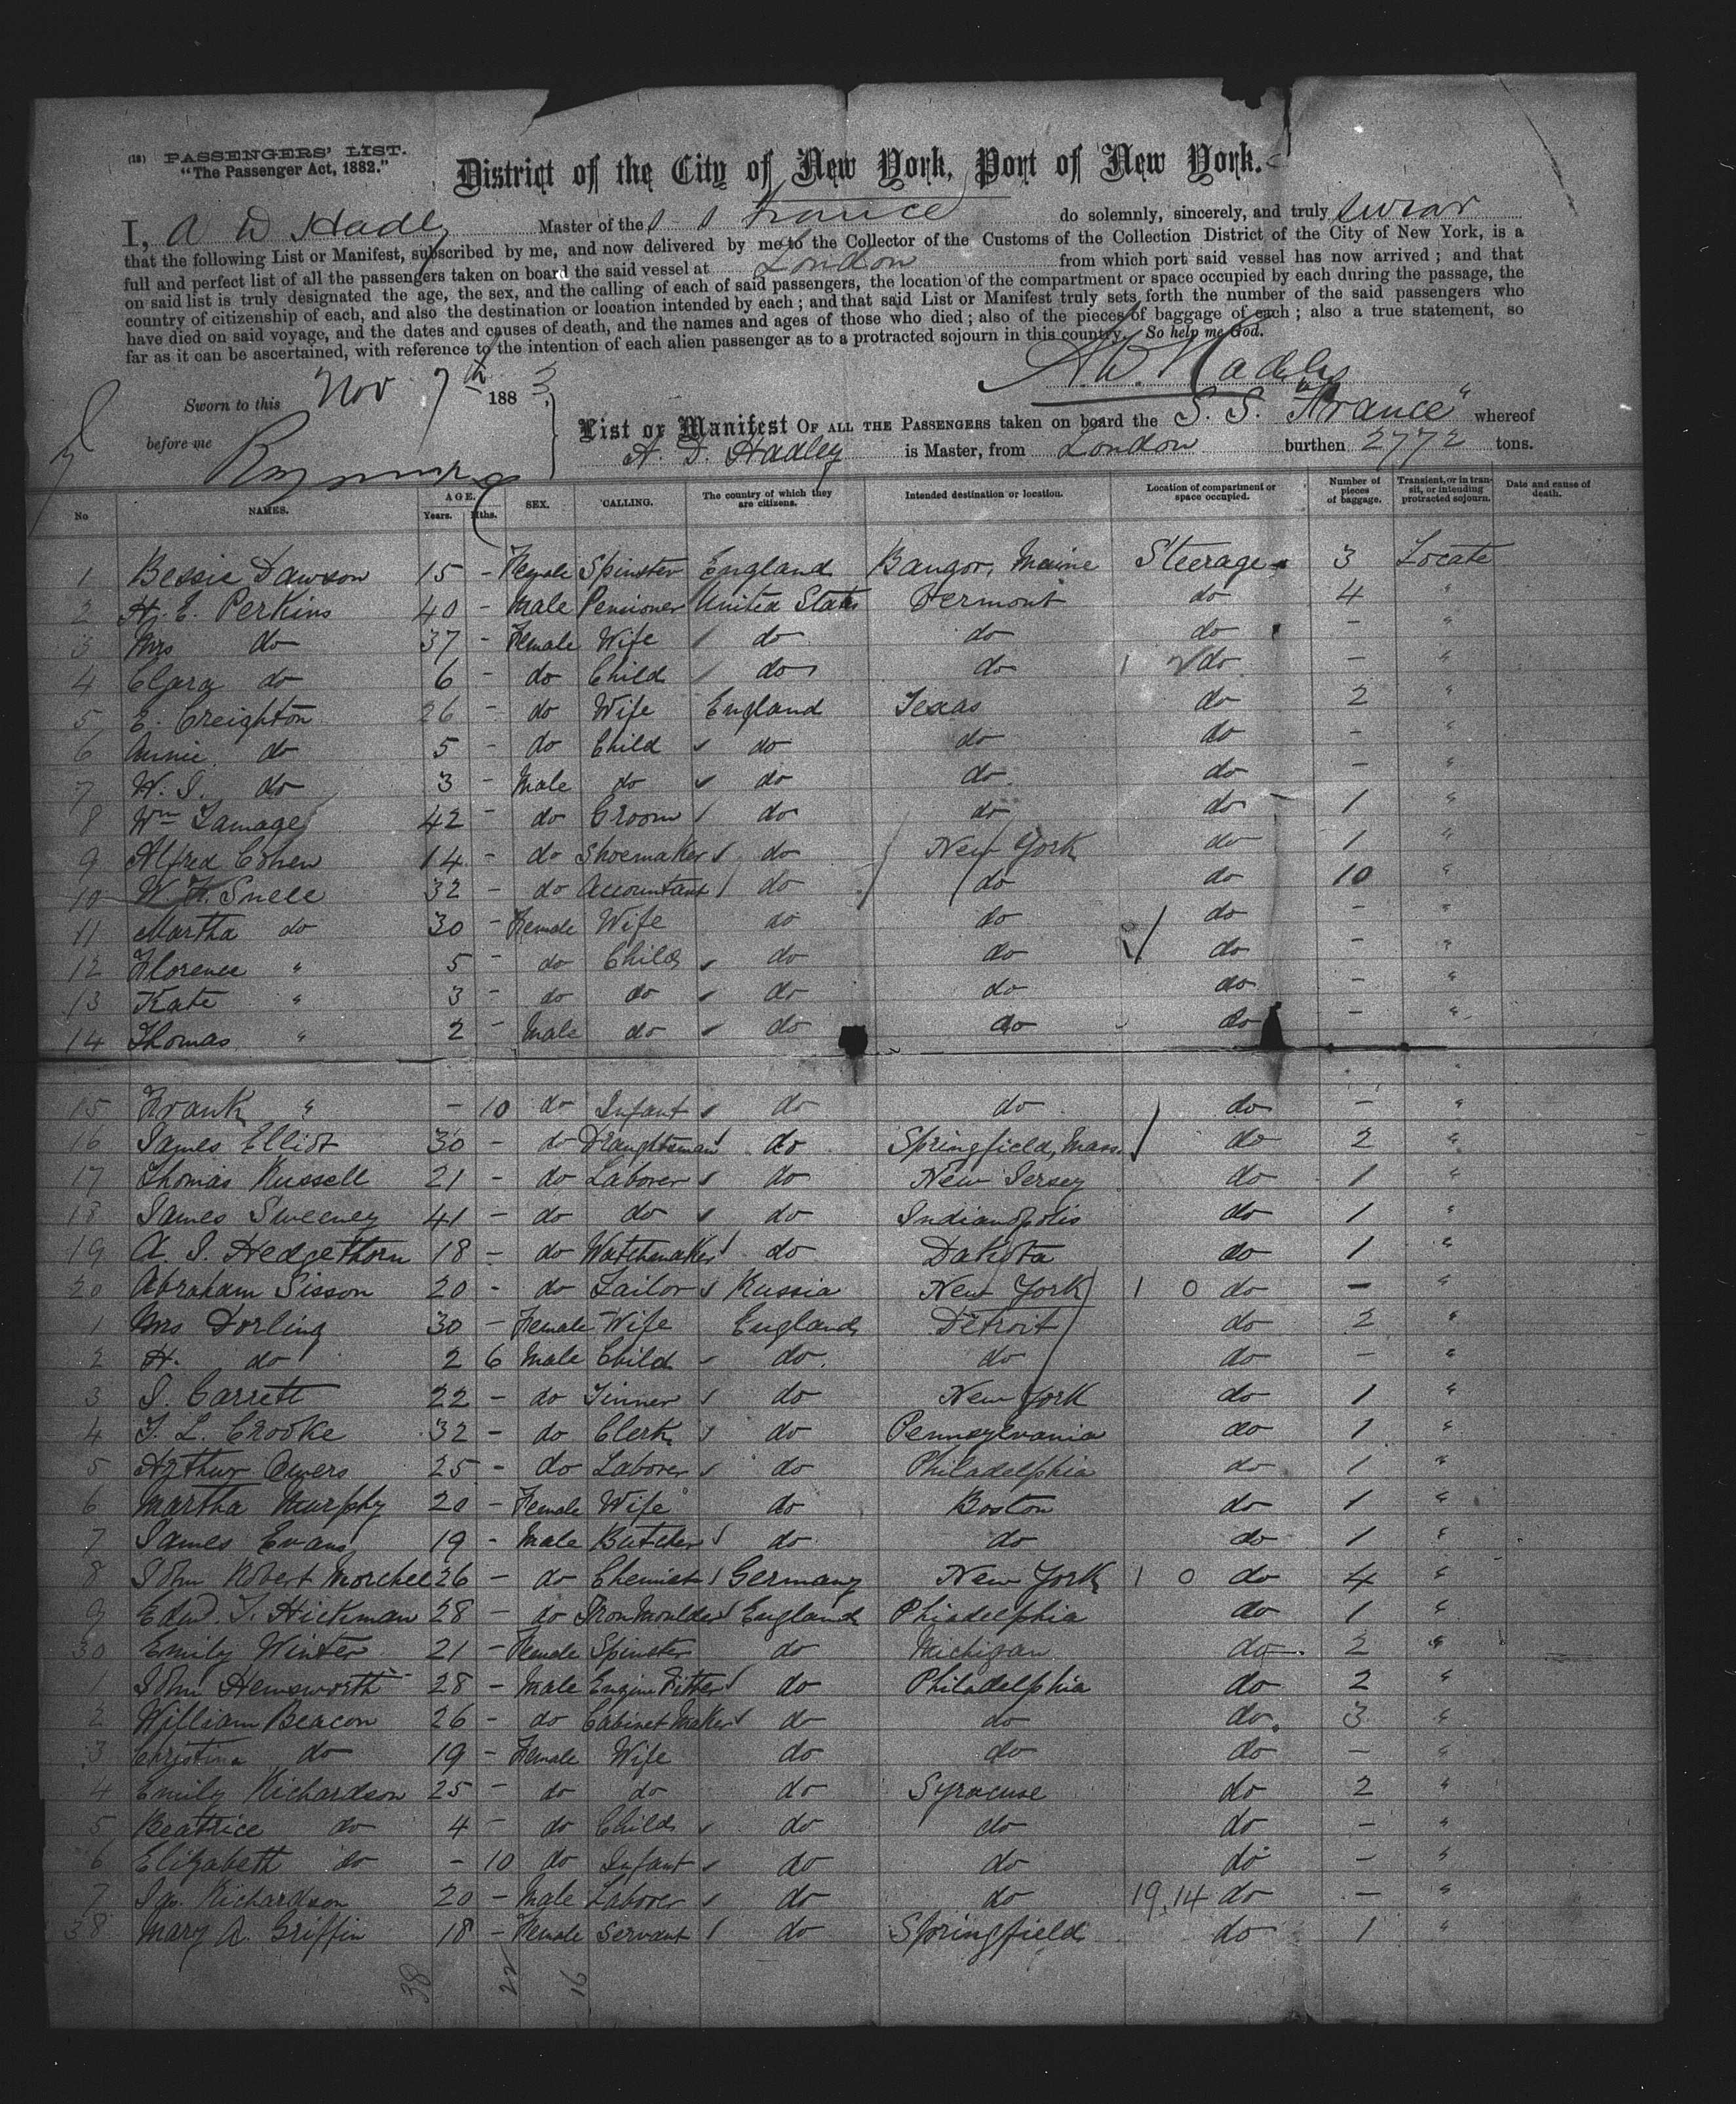 (18) PASSENGERS' LIST.
"The Passenger Act, 1882."
District of the City of New York, Port of New York.
I, A W Hadley Master of the S S France do solemnly, sincerely, and truly swear
that the following List or Manifest, subscribed by me, and now delivered by me to the Collector of the Customs of the Collection District of the City of New York, is a
full and perfect list of all the passengers taken on board the said vessel at London from which port said vessel has now arrived; and that
on said list is truly designated the age, the sex, and the calling of each of said passengers, the location of the compartment or space occupied by each during the passage, the
country of citizenship of each, and also the destination or location intended by each; and that said List or Manifest truly sets forth the number of the said passengers who
have died on said voyage, and the dates and causes of death, and the names and ages of those who died; also of the pieces of baggage of each; also a true statement, so
far as it can be ascertained, with reference to the intention of each alien passenger as to a protracted sojourn in this country. So help me God.
A.W. Hadley
Sworn to this Nov 7th 1883
before me
List or Manifest OF ALL THE PASSENGERS taken on board the S. S. "France" whereof
A. D. Hadley is Master, from London burthen 2772 tons.
No NAMES. AGE. Years. Mths. SEX. CALLING. The country of which they are citizens. Intended destination or location. Location of compartment or space occupied. Number of pieces of baggage. Transient, or in transit, or intending protracted sojourn. Date and cause of death.
1 Bessie Dawson 15 - Female Spinster England Bangor, Maine Steerage 3 Locate
2 H. E. Perkins 40 - Male Pensioner United States Vermont do 4 "
3 Mrs do 37 - Female Wife do do do - "
4 Clara do 6 - do Child do do do - "
5 E. Creighton 26 - do Wife England Texas do 2 "
6 Annie do 5 - do Child do do do - "
7 W. J. do 3 - Male do do do do - "
8 Wm Lamage 42 - do Groom do do do 1 "
9 Alfred Cohen 14 - do Shoemaker do New York do 1 "
10 W. H. Snell 32 - do Accountant do do do 10 "
11 Martha do 30 - Female Wife do do do - "
12 Florence " 5 - do Child do do do - "
13 Kate " 3 - do do do do do - "
14 Thomas " 2 - Male do do do do - "
15 Frank " - 10 do Infant do do do - "
16 James Elliot 30 - do Draughtsman do Springfield, Mass. do 2 "
17 Thomas Russell 21 - do Laborer do New Jersey do 1 "
18 James Sweeney 41 - do do do Indianopolis do 1 "
19 A J. Hedgethorn 18 - do Watchmaker do Dakota do 1 "
20 Abraham Sisson 20 - do Tailor Russia New York 1 0 do - "
1 Mrs Dorling 30 - Female Wife England Detroit do 2 "
2 H. do 2 6 Male Child do do do - "
3 J. Garrett 22 - do Tinner do New York do 1 "
4 T. L. Crooke 32 - do Clerk do Pennsylvania do 1 "
5 Arthur Amers 25 - do Laborer do Philadelphia do 1 "
6 Martha Murphy 20 - Female Wife do Boston do 1 "
7 James Evans 19 - Male Butcher do do do 1 "
8 John Robert Morchel 26 - do Chemist Germany New York 1 0 do 4 "
9 Edw. T. Hickman 28 - do Iron Moulder England Phiadelphia do 1 "
30 Emily Winter 21 - Female Spinster do Michigan do 2 "
1 John Hemsworth 28 - Male Engine Fitter do Philadelphia do 2 "
2 William Beacon 26 - do Cabinet Maker do do do 3 "
3 Christina do 19 - Female Wife do do do - "
4 Emily Richardson 25 - do do do Syracuse do 2 "
5 Beatrice do 4 - do Child do do do - "
6 Elizabeth do - 10 do Infant do do do - "
7 Jas. Richardson 20 - Male Laborer do do 19.14 do - "
38 Mary A. Griffin 18 - Female Servant do Springfield do 1 "
38 22 16